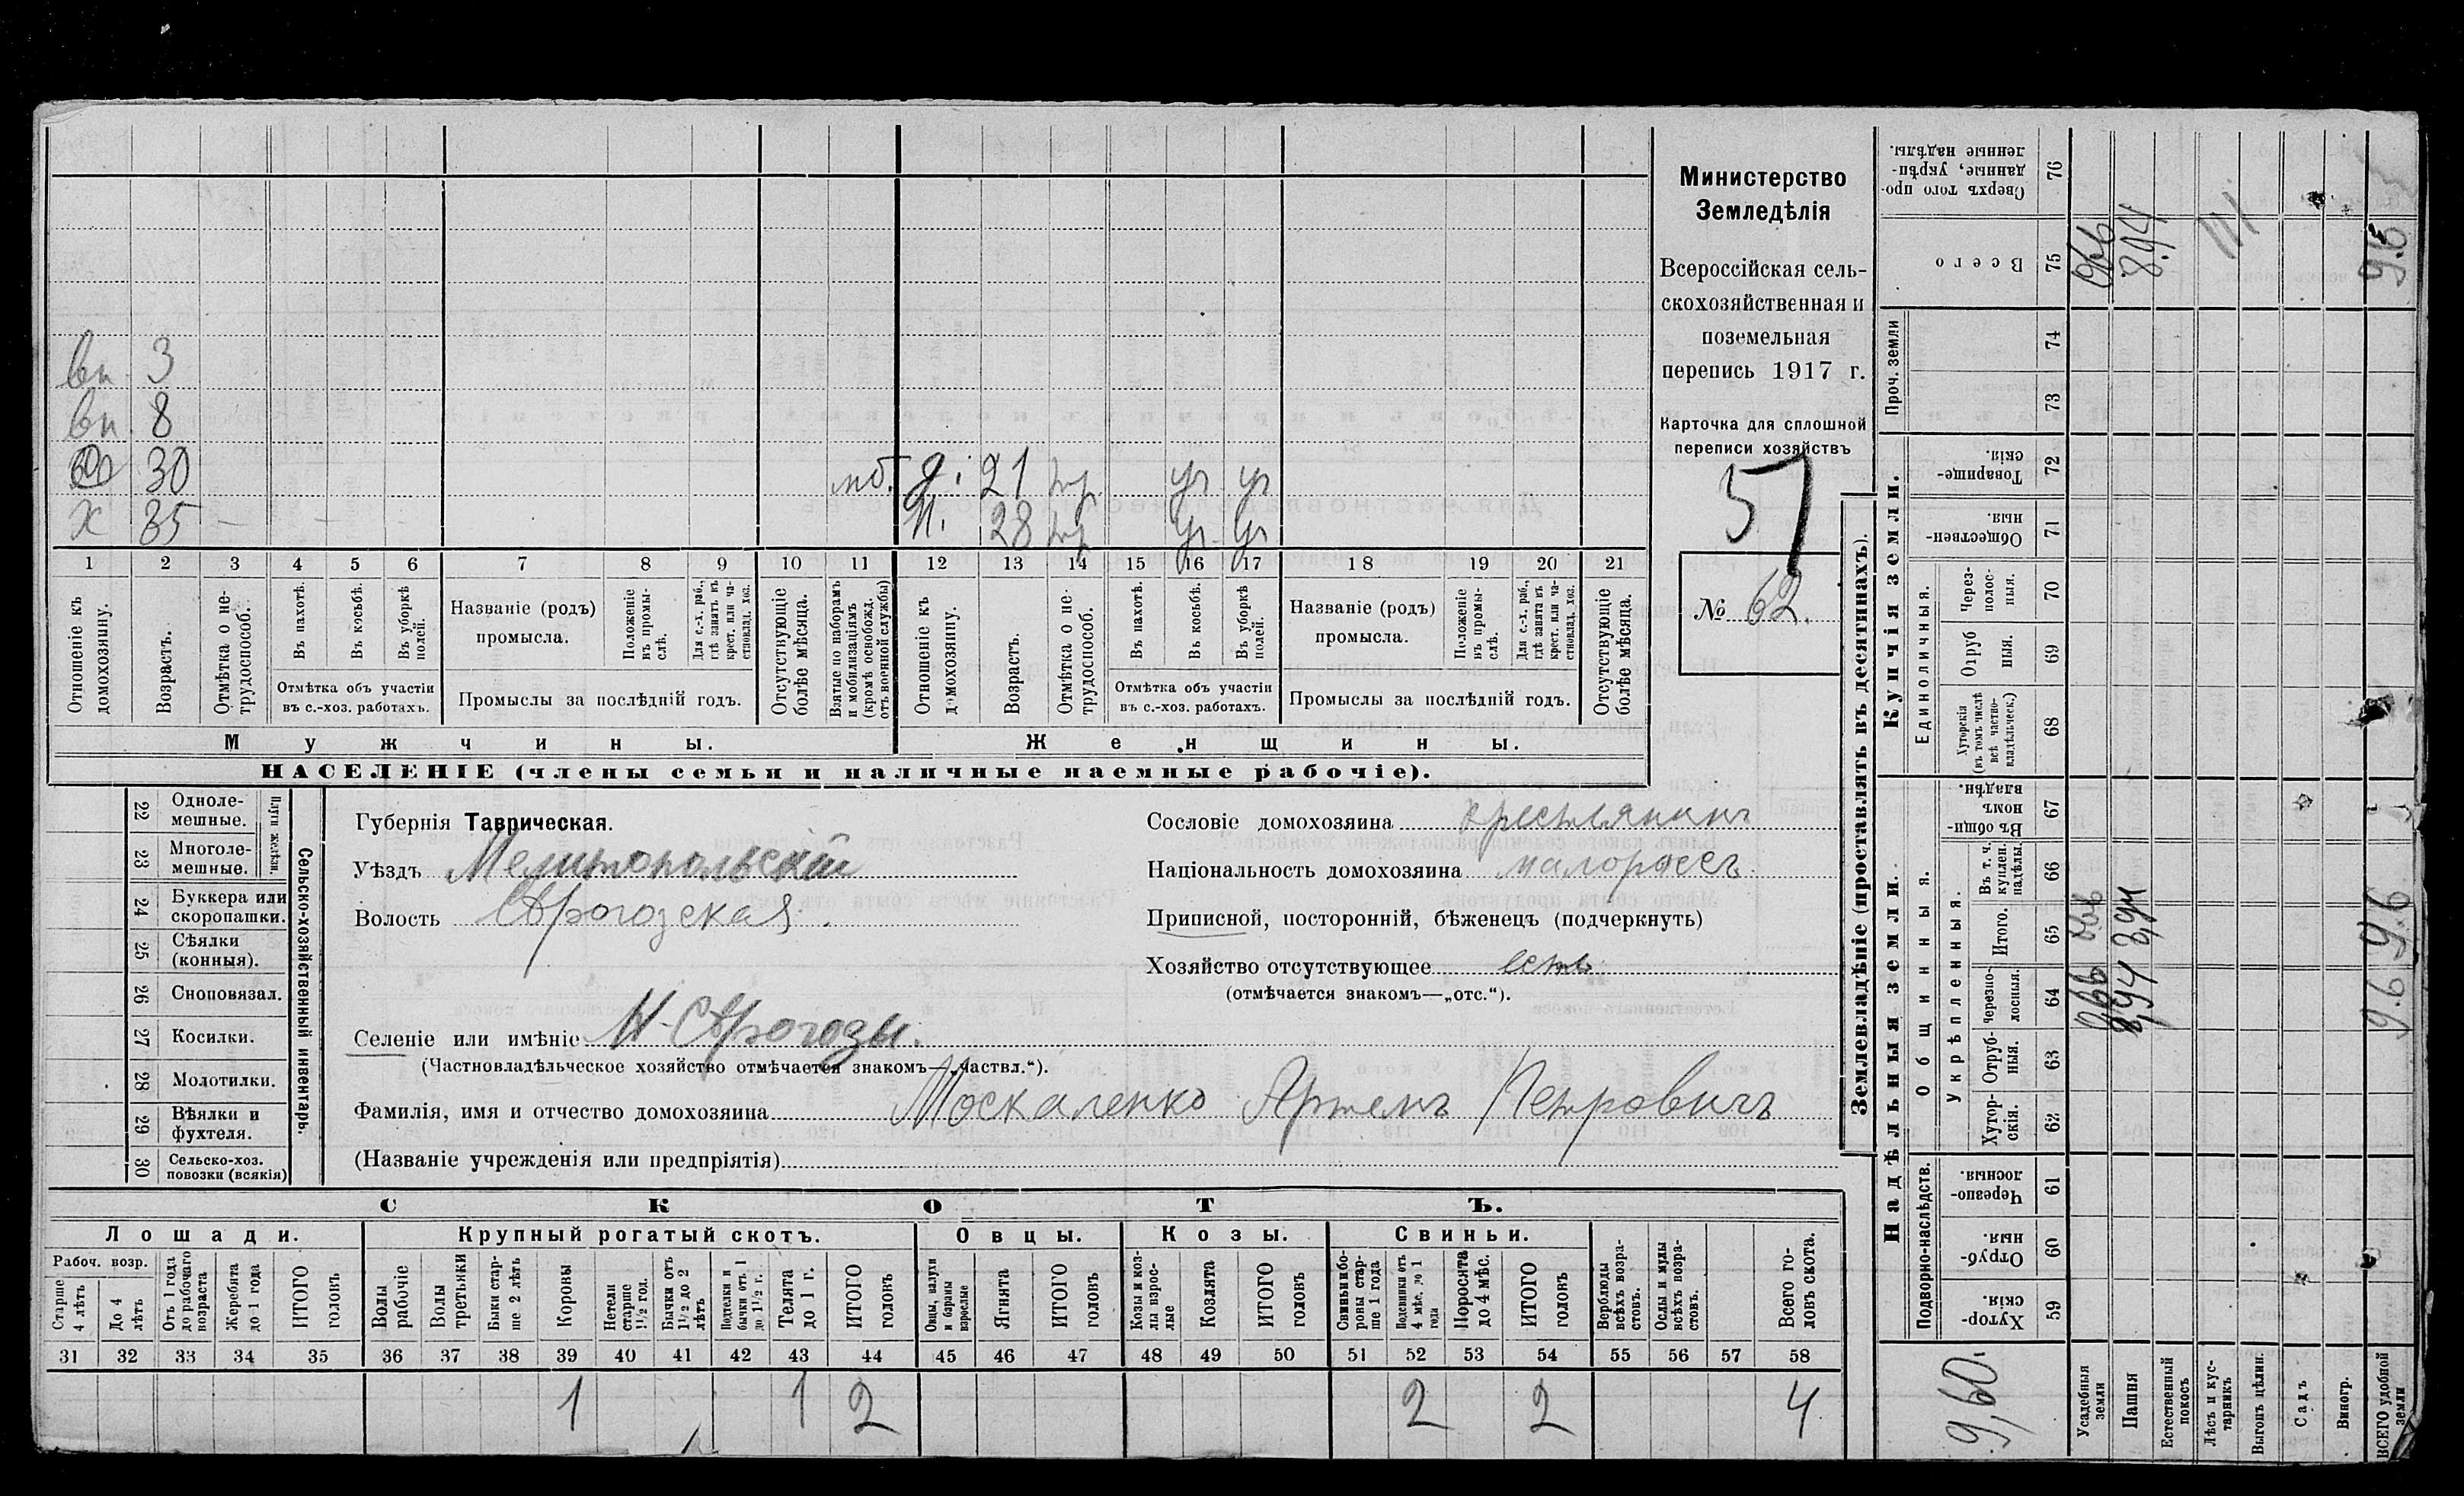 Министерство
Земледѣлія
Всероссійская сель-
скохозяйственная и
поземельная
перепись 1917 г.
Карточка для сплошной
переписи хозяйствъ
57
№ 62.
вп. 3
вп. 8
30 мб. 21 ур ур
х 35 — — — 28 ур ур
1 2 3 4 5 6 7 8 9 10 11 12 13 14 15 16 17 18 19 20 21
Отношеніе къ домохозяину.
Возрастъ.
Отмѣтка о не-трудоспособ.
Въ пахотѣ.
Въ косьбѣ.
Въ уборкѣ полей.
Отмѣтка объ участіи
въ с.-хоз. работахъ.
Названіе (родъ)
промысла.
Положеніе въ промы-слѣ.
Для с.-х. раб., гдѣ занятъ въ крест. или ча-стновлад. хоз.
Промыслы за послѣдній годъ.
Отсутствующіе болѣе мѣсяца.
Взятые по наборамъ и мобилизаціямъ (кромѣ освобожд. отъ военной службы)
Отношеніе къ домохозяину.
Возрастъ.
Отмѣтка о не-трудоспособ.
Въ пахотѣ.
Въ косьбѣ.
Въ уборкѣ полей.
Отмѣтка объ участіи
въ с.-хоз. работахъ.
Названіе (родъ)
промысла.
Положеніе въ промы-слѣ.
Для с.-х. раб., гдѣ занята въ крест. или ча-стновлад. хоз.
Промыслы за послѣдній годъ.
Отсутствующіе болѣе мѣсяца.
Мужчины. Женщины.
НАСЕЛЕНІЕ (члены семьи и наличные наемные рабочіе).
22 Одноле-мешные.
23 Многоле-мешные.
Плуги желѣзн.
24 Буккера или скоропашки.
25 Сѣялки (конныя).
26 Сноповязал.
27 Косилки.
28 Молотилки.
29 Вѣялки и фухтеля.
30 Сельско-хоз. повозки (всякія)
Сельско-хозяйственный инвентарь.
Губернія Таврическая.
Уѣздъ Мелитопольскій
Волость Сѣрогозская.
Селеніе или имѣніе Н-Сѣрогозы.
(Частновладѣльческое хозяйство отмѣчается знакомъ—„частвл.“).
Фамилія, имя и отчество домохозяина Москаленко Артемъ Петровичъ
(Названіе учрежденія или предпріятія)
Сословіе домохозяина крестьянинъ
Національность домохозяина малороссъ
Приписной, посторонній, бѣженецъ (подчеркнуть)
Хозяйство отсутствующее есть
(отмѣчается знакомъ—„отс.“).
СКОТЪ.
Лошади. Крупный рогатый скотъ. Овцы. Козы. Свиньи.
Рабоч. возр.
Старше 4 лѣтъ
До 4 лѣтъ
Отъ 1 года до рабочаго возраста
Жеребята до 1 года
ИТОГО головъ
Волы рабочіе
Волы третьяки
Быки стар-ше 2 лѣтъ
Коровы
Нетели старше 1½ год.
Бычки отъ 1½ до 2 лѣтъ
Подтелки и бычки отъ 1 до 1½ г.
Телята до 1 г.
ИТОГО головъ
Овцы, валухи и бараны взрослые
Ягнята
ИТОГО головъ
Козы и коз-лы взрос-лые
Козлята
ИТОГО головъ
Свиньи бо-ровы стар-ше 1 года
Подсвинки отъ 4 мѣс. до 1 года
Поросята до 4 мѣс.
ИТОГО головъ
Верблюды всѣхъ возра-стовъ.
Ослы и мулы всѣхъ возра-стовъ.
Всего го-ловъ скота.
31 32 33 34 35 36 37 38 39 40 41 42 43 44 45 46 47 48 49 50 51 52 53 54 55 56 57 58
1 1 2 2 2 4
Землевладѣніе (проставлять въ десятинахъ).
Надѣльныя земли. Купчія земли.
Подворно-наслѣдств.
Общинныя.
Укрѣпленныя.
Единоличныя.
Проч. земли
Хутор-скія. 59
Отруб-ныя. 60
Черезпо-лосныя. 61
Хутор-скія. 62
Отруб-ныя. 63
Черезпо-лосныя. 64
Итого. 65
Въ т. ч. куплен. надѣлы. 66
Въ общи-номъ владѣн. 67
Хуторскія (въ томъ числѣ всѣ частно-владѣльческ.) 68
Отруб ныя. 69
Через-полос-ныя. 70
Обществен-ныя. 71
Товарище-скія. 72
73
74
Всего 75
Сверхъ того про-данные, укрѣп-ленные надѣлы. 76
9,60.
Усадебныя земли 0,66 0,66 0,66
Пашня 8,94 8,94 8,94
Естественный покосъ
Лѣсъ и кус-тарникъ
Выгонъ цѣлин.
Садъ
Виногр.
ВСЕГО удобной земли 9.6 9.6 9.6